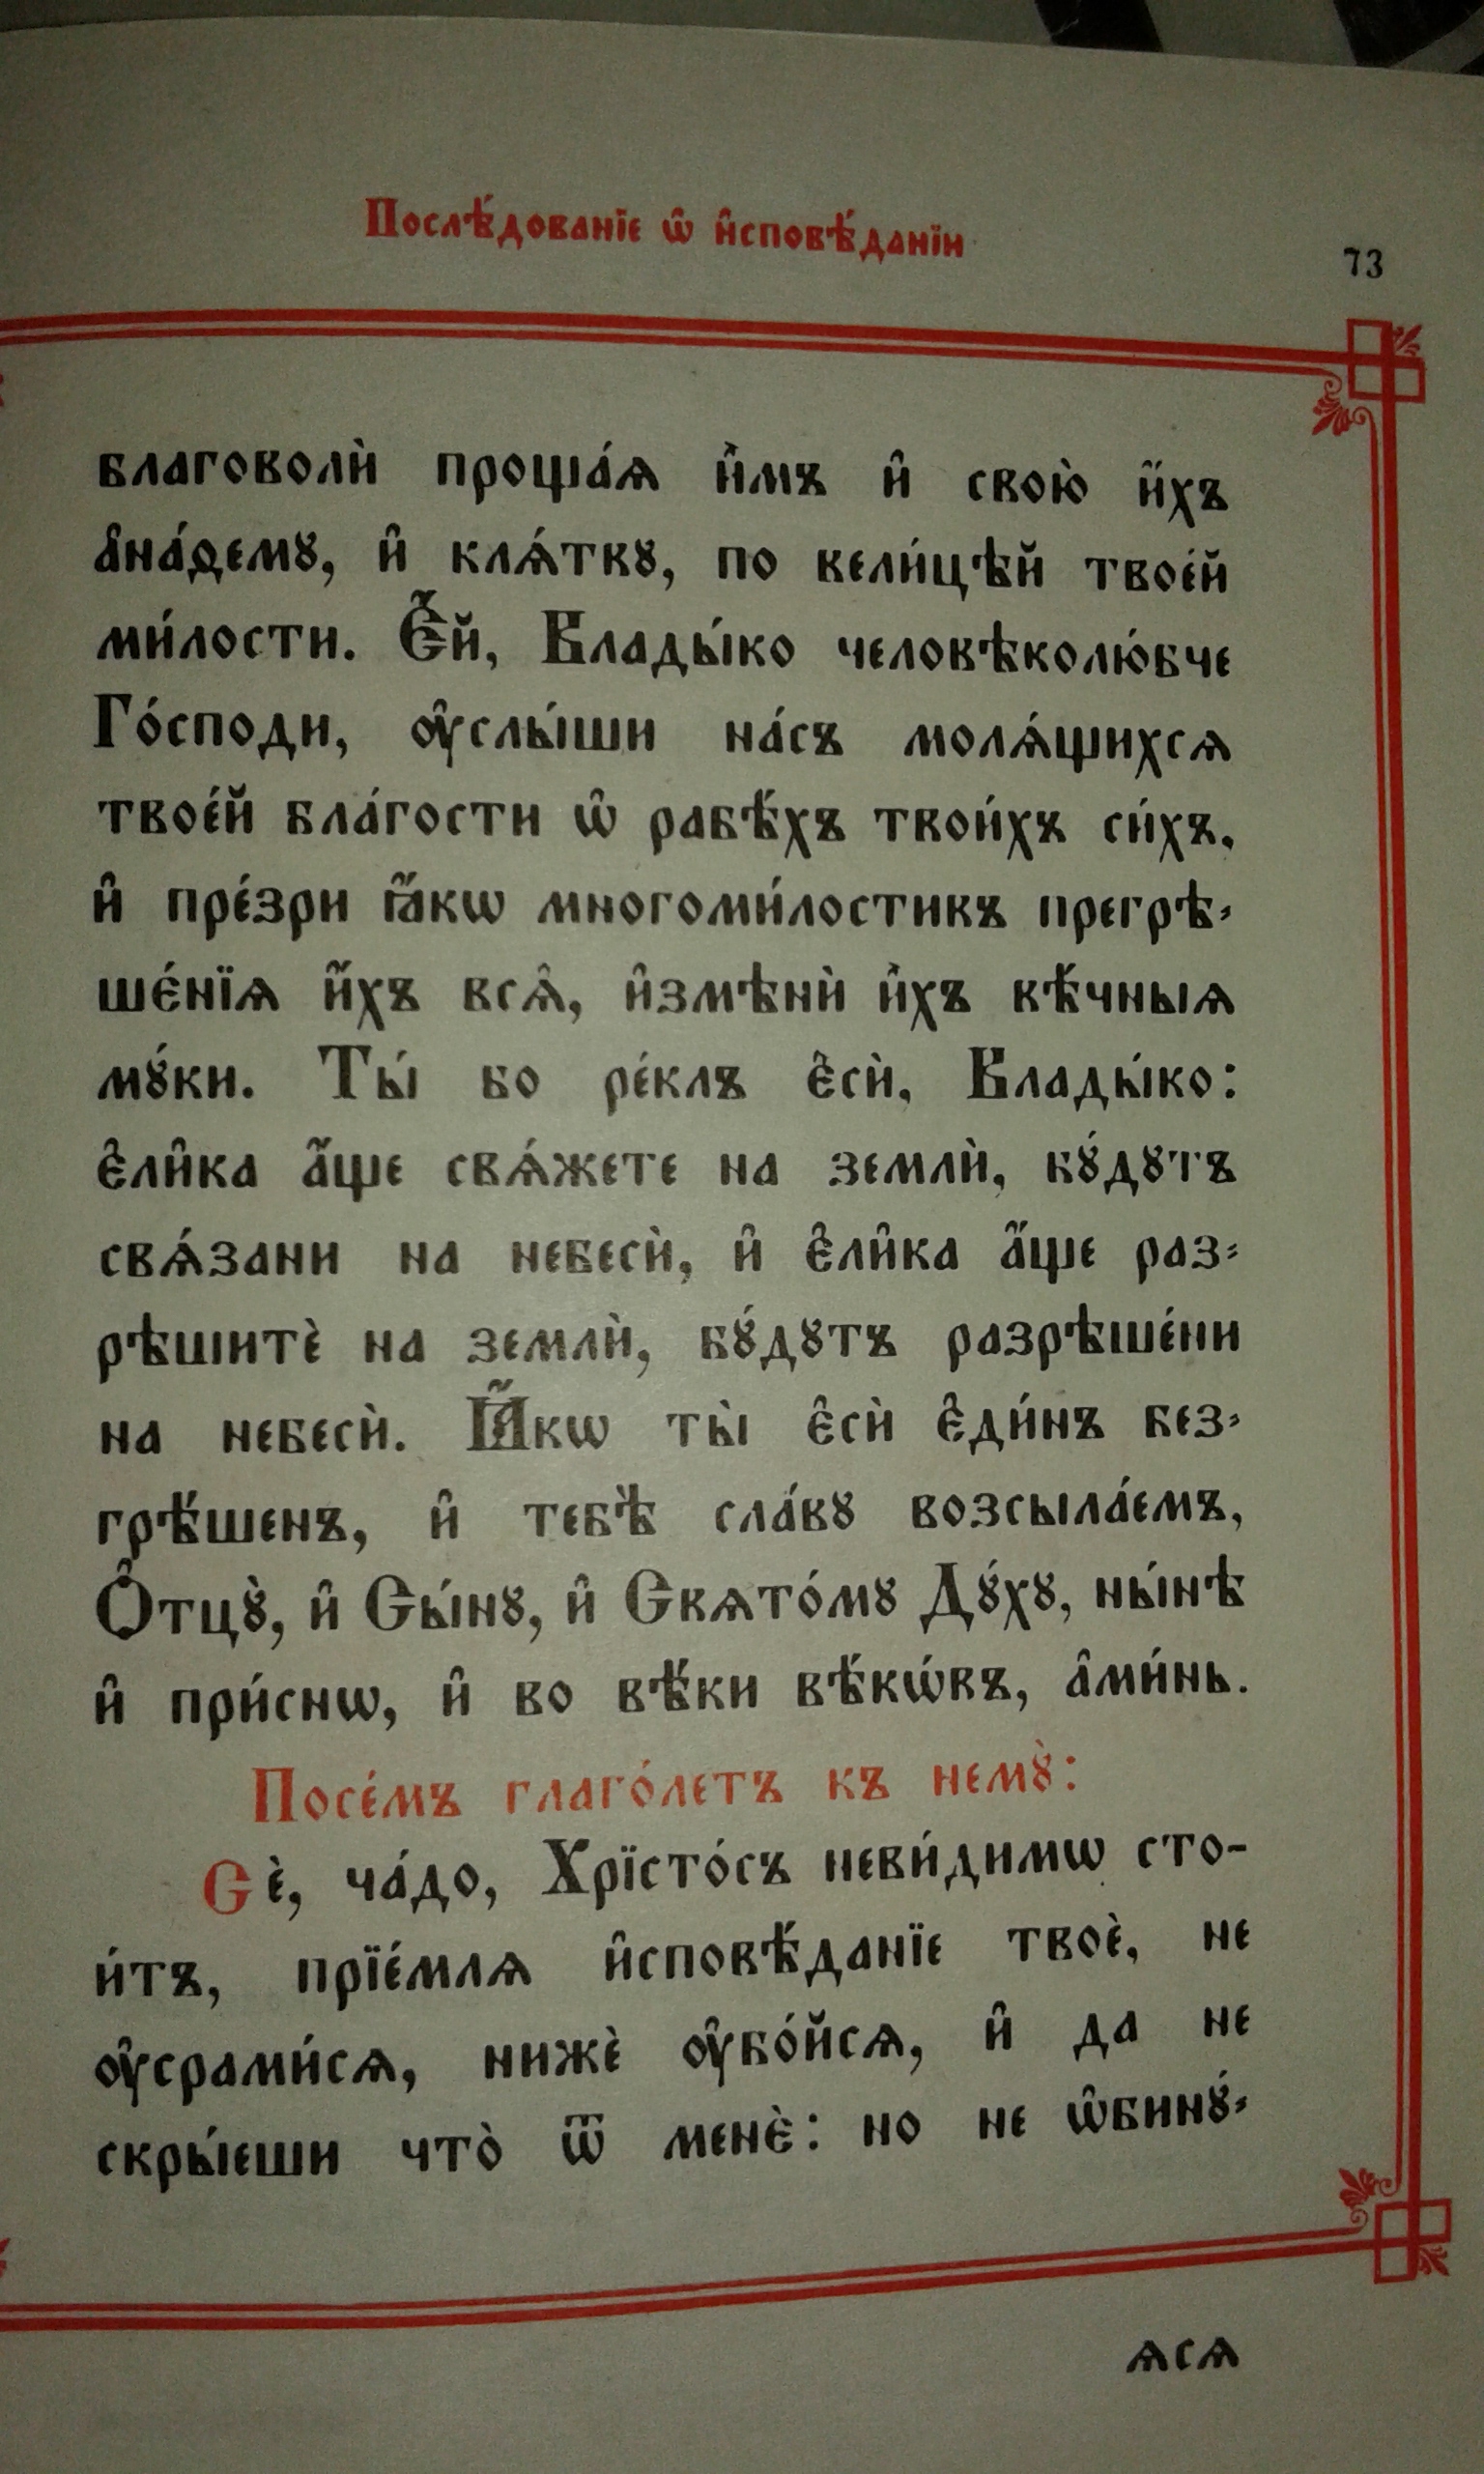 Послѣ́дованїе ѡ҆ и҆сповѣ́данїи
73
благоволѝ проща́ѧ и҆̀мъ и҆ свою̀ и҆́хъ
а҆на́ѳемꙋ, и҆ клѧ́твꙋ, по вели́цѣй твоє́й
ми́лости. Є҆́й, Влады́ко человѣколю́бче
Го́споди, ᲂу҆слы́ши на́съ молѧ́щихсѧ
твоє́й бла́гости ѡ҆ рабѣ́хъ твои́хъ си́хъ,
и҆ пре́зри ꙗ҆́кѡ многоми́лостивъ прегрѣ-
ше́нїѧ и҆́хъ всѧ̑, и҆змѣнѝ и҆̀хъ вѣ́чныѧ
мꙋ́ки. Ты́ бо ре́клъ є҆сѝ, Влады́ко:
є҆ли̑ка а҆́ще свѧ́жете на землѝ, бꙋ́дꙋтъ
свѧ́зани на небесѝ, и҆ є҆ли̑ка а҆́ще раз-
рѣшитѐ на землѝ, бꙋ́дꙋтъ разрѣше́ни
на небесѝ. Ꙗ҆́кѡ ты̀ є҆сѝ є҆ди́нъ без-
грѣ́шенъ, и҆ тебѣ̀ сла́вꙋ возсыла́емъ,
Ѻ҆тцꙋ̀, и҆ Сы́нꙋ, и҆ Свѧто́мꙋ Дꙋ́хꙋ, ны́нѣ
и҆ при́снѡ, и҆ во вѣ́ки вѣкѡ́въ, а҆ми́нь.
Посе́мъ глаго́летъ къ немꙋ̀:
Сѐ, ча́до, Хрїсто́съ неви́димѡ сто-
и́тъ, прїе́млѧ и҆сповѣ́данїе твоѐ, не
ᲂу҆срами́сѧ, нижѐ ᲂу҆бо́йсѧ, и҆ да не
скры́еши что̀ ѿ менє̀: но не ѡ҆бинꙋ́-
ѧсѧ